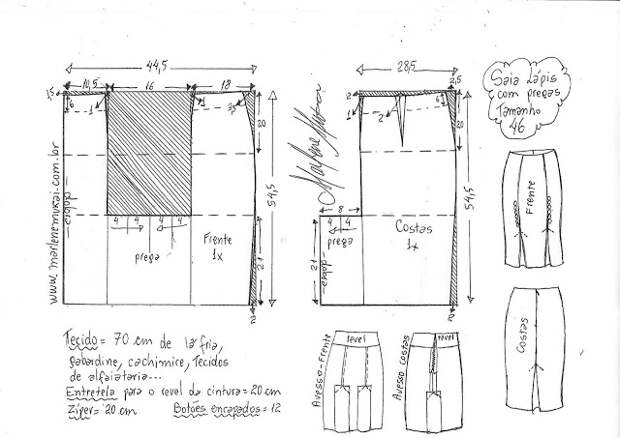 44,5
10,5 16 18
1,5
6
1
1
3,5
20
54,5
dobra
4 4 4 4
prega
Frente
1x
21
2
www.marlenemukai.com.br
Marlene Mukai
28,5
2,5
2
2
6
20
54,5
8
4 4
prega
dobra
Costas
1x
21
2
Saia Lápis
com pregas
Tamanho
46
Frente
Costas
Tecido = 70 cm de lã fria,
gabardine, cachimire, Tecidos
de alfaiataria...
Entretela para o revel da cintura = 20 cm
Zíper = 20 cm Botões encapados = 12
Avesso - Frente
revel
Avesso costas
revel